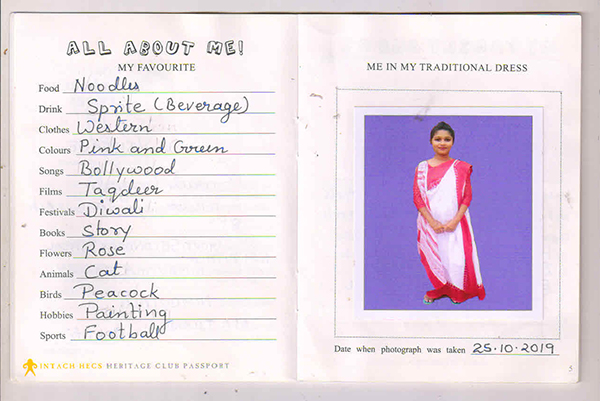 ALL ABOUT ME!
MY FAVOURITE
Food Noodles
Drink Sprite (Beverage)
Clothes Western
Colours Pink and Green
Songs Bollywood
Films Taqdeer
Festivals Diwali
Books Story
Flowers Rose
Animals Cat
Birds Peacock
Hobbies Painting
Sports Football
INTACH HECS HERITAGE CLUB PASSPORT
ME IN MY TRADITIONAL DRESS
Date when photograph was taken 25.10.2019
5